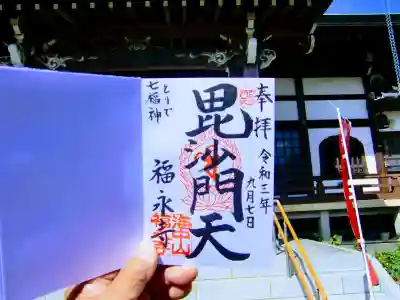 奉拝
令和三年
九月七日
毘沙門天
とりで
七福神
福永寺